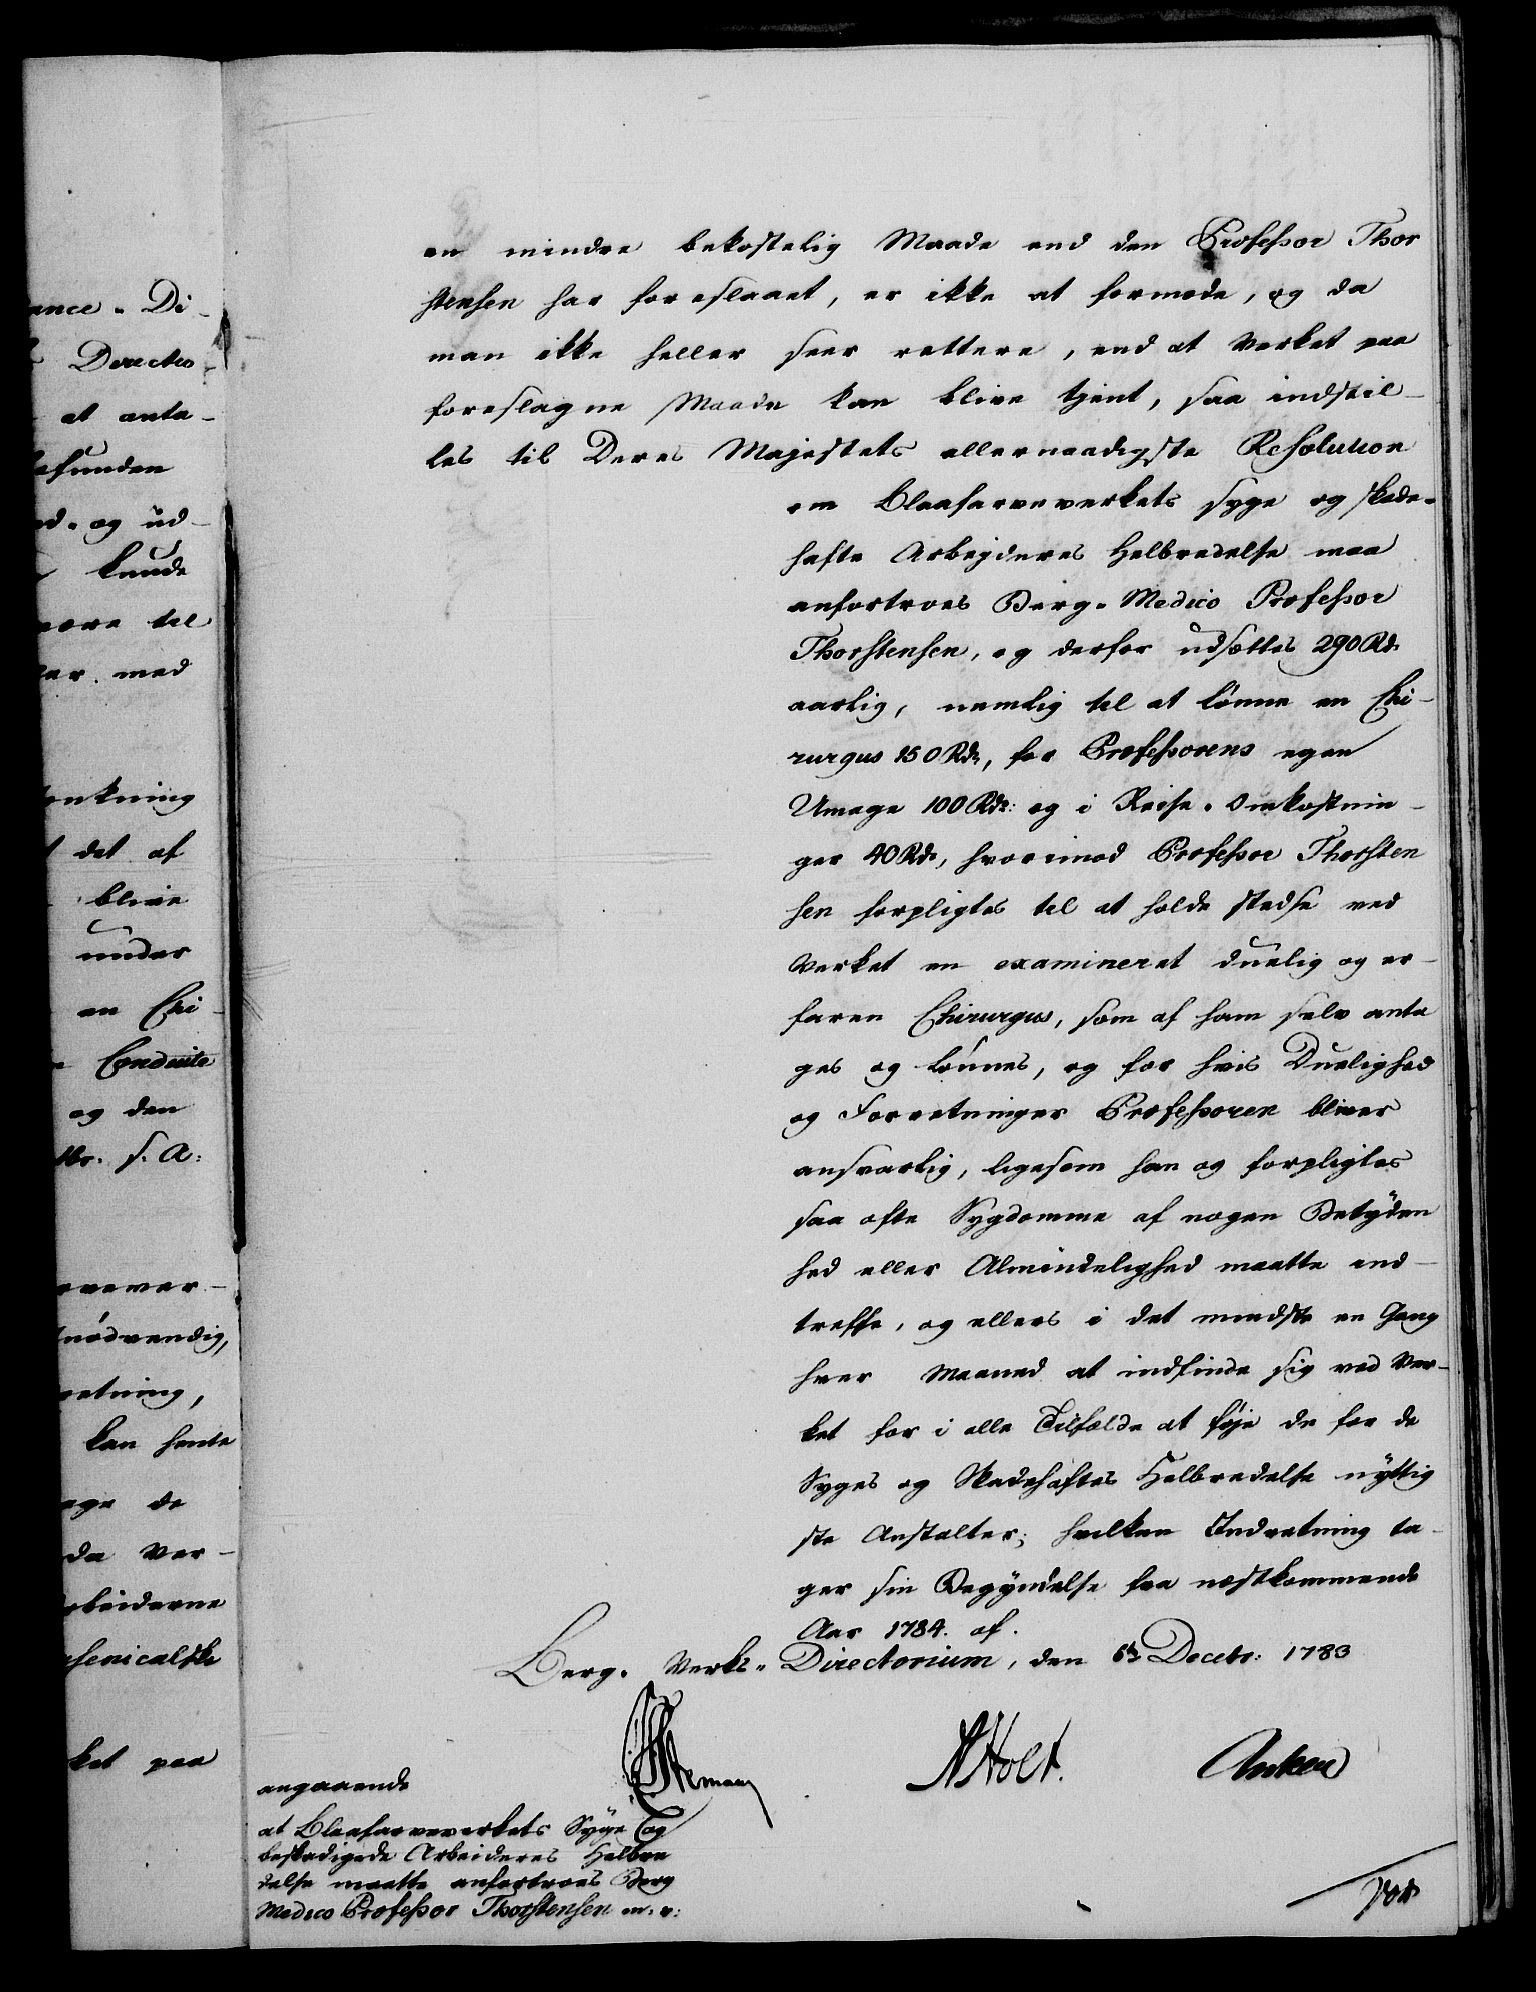 ance-Di-
Directeu
at anta-
befunden
nd- og ud-
kunde
være til
er med
enkning
det af
blive
under
en Chi-
Conduite
og den
br. s. A:
rvever-
nødvendig,
retning,
kan hente
age de
da Ver-
rbeiderne
rsenicalske
ket paa
en mindre bekostelig Maade end den Professor Thor
stensen har foreslaaet, er ikke at formode, og da
man ikke heller seer rettere, end at Verket paa
foreslagne Maade kan blive tjent, saa indstil-
les til Deres Majestets allernaadigste Resolution
om Blaafarveverkets syge og skade-
hafte Arbejderes Helbredelse maa
anfortroes Berg-Medico Professor
Thorstensen, og derfor udsættes 290 Rdr
aarlig, nemlig til at lønne en Chi-
rurgus 150 Rdr, for Professorens egen
Umage 100 Rdr: og i Reise-Omkostnin-
ger 40 Rdr, hvorimod Professor Thorsten
sen forpligtes til at holde stedse ved
Verket en examineret duelig og er-
faren Chirurgus, som af ham selv anta
ges og lønnes, og for hvis Duelighed
og Forretninger Professoren bliver
ansvarlig, ligesom han og forpligtes
saa ofte Sygdomme af nogen Betyden
hed eller Almindelighed maatte ind-
treffe, og ellers i det mindste en Gang
hver Maaned at indfinde sig ved Ver-
ket for i alle Tilfælde at føje de for de
Syges og Skadehaftes Helbredelse nyttig
ste Anstalter; hvilken Indretning ta-
ger sin Begyndelse fra næstkommende
Aar 1784. af.
Berg-Verks-Directorium, den 6te Decebr: 1783
AHolt.
Anker
angaaende
at Blaafarveverkets Syge og
beskadigede Arbeideres Helbre
delse maatte anfortroes Berg
Medico Professor Thorstensen m. v: